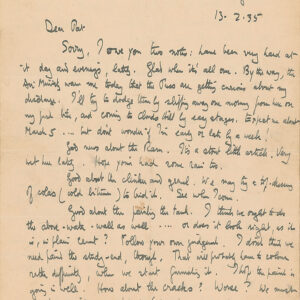 13.2.35
Dear Pat
Sorry, I owe you this note: have been very hard at
it day and evenings, lately. Glad when it's all over. By the way, the
Air Ministry warn me today that the Press are getting curious about my
dischange. I'll try to dodge them by slipping away one morning from here on
my push bike, and coming to Clouds Hill by easy stages. Expect me about
March 5 ... but don't wonder if I'm early or late by a week!
Good news about the Ram. It's a stout little article. Very
wet here lately. Hope you've had some rain too.
Good about the clinker and gravel. We may try a top-dressing
of colas (cold bitumen) to bind it. See when I come.
Good about the painting the tank. I think we ought to do
the above-water-wall as well ..... or does it look right, as it
is, in plain cement? Follow your own judgement. I don't think we
need paint the study-end, though. That will probably have to colour
rather differently, when we start furnishing it. I hope the painting is
going well. How about the cracks? Worse? We must